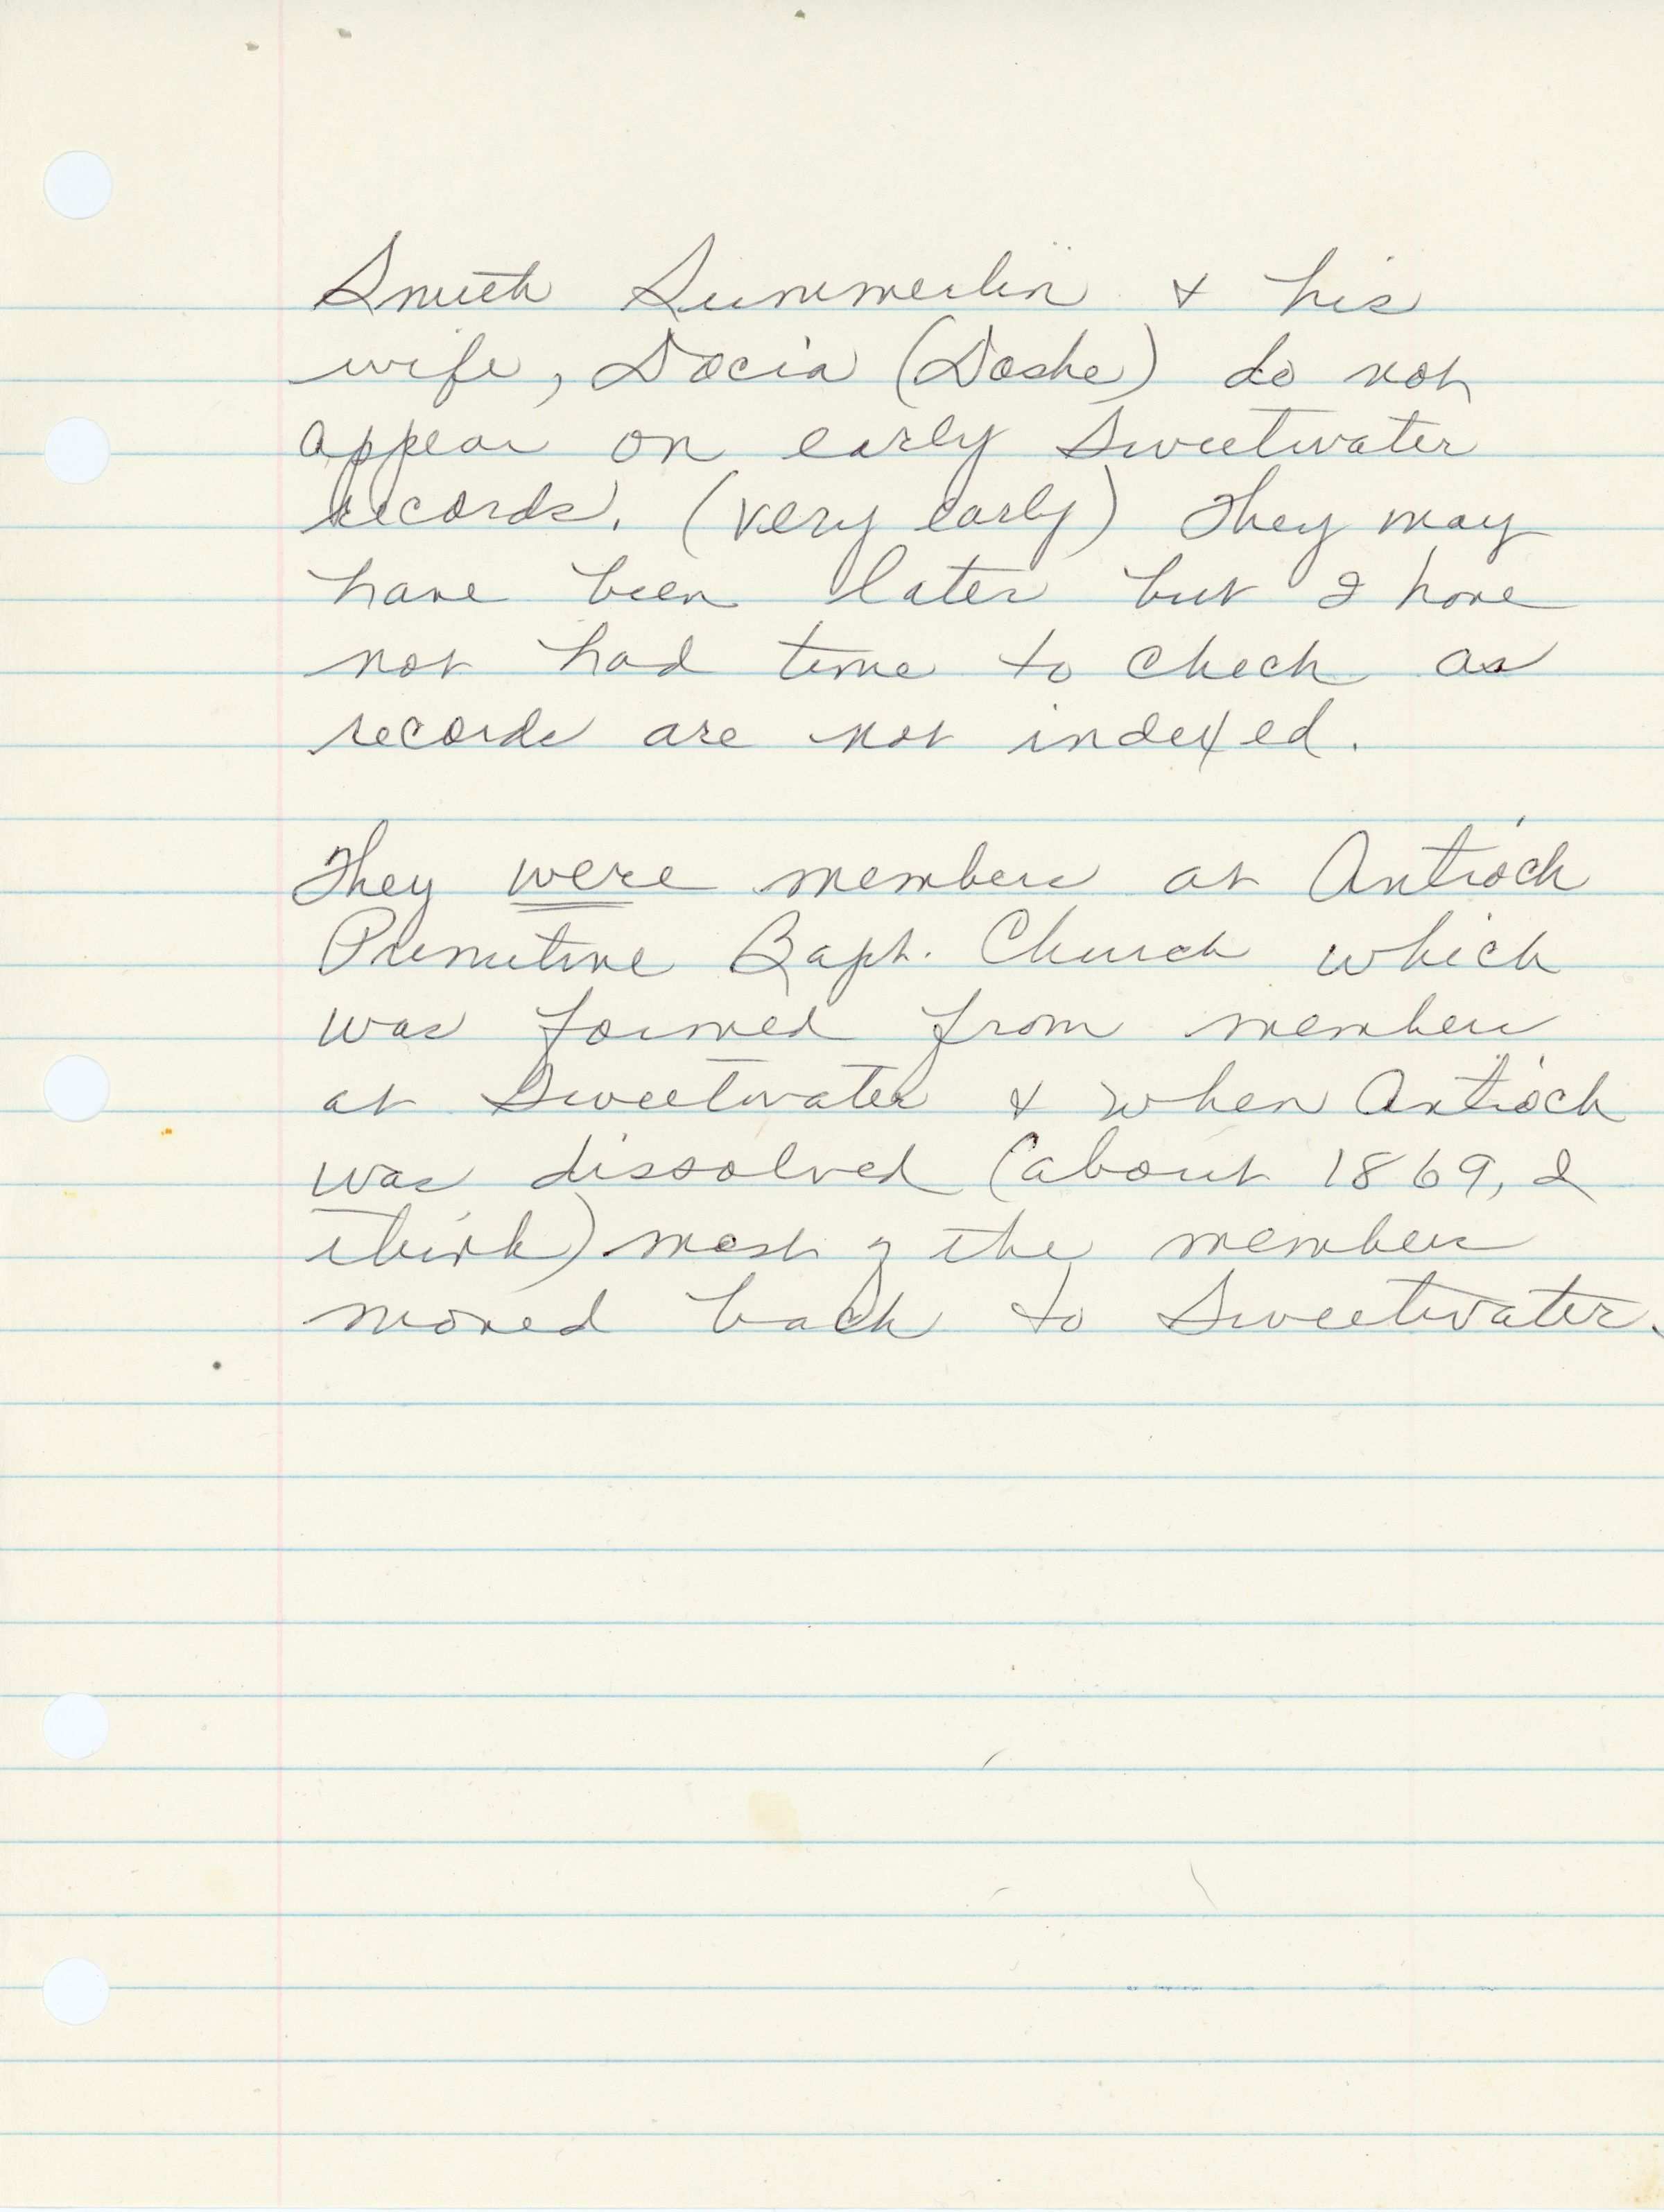 Smith Summerlin & his
wife, Docia (Doshe) do not
appear on early Sweetwater
records. (very early) They may
have been later but I have
not had time to check as
records are not indexed.
They were members at Antioch
Primitive Bapt. Church which
was formed from members
at Sweetwater & when Antioch
was dissolved (about 1869, I
think) most of the members
moved back to Sweetwater.